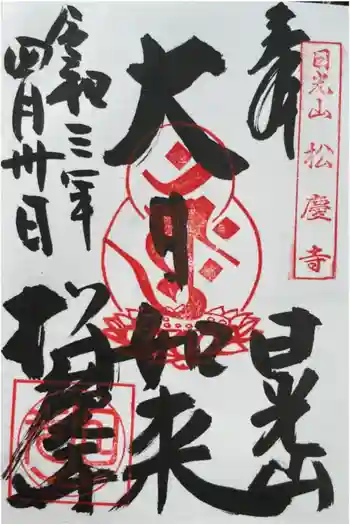 奉
日光山 松慶寺
日光山
大日如来
令和三年
四月卅日
松慶寺